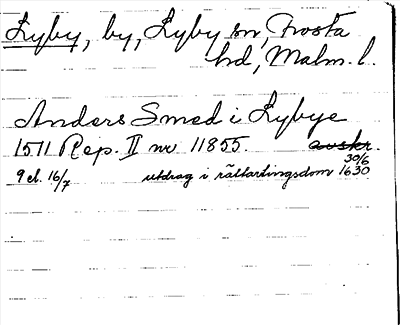 Lyby, by, Lyby sn, Frosta
hd, Malm. l.
Anders Smed i Lybye
1511 Rep. II nr 11855. avskr.
9 el. 16/7 utdrag i rättartingsdom 30/6 1630